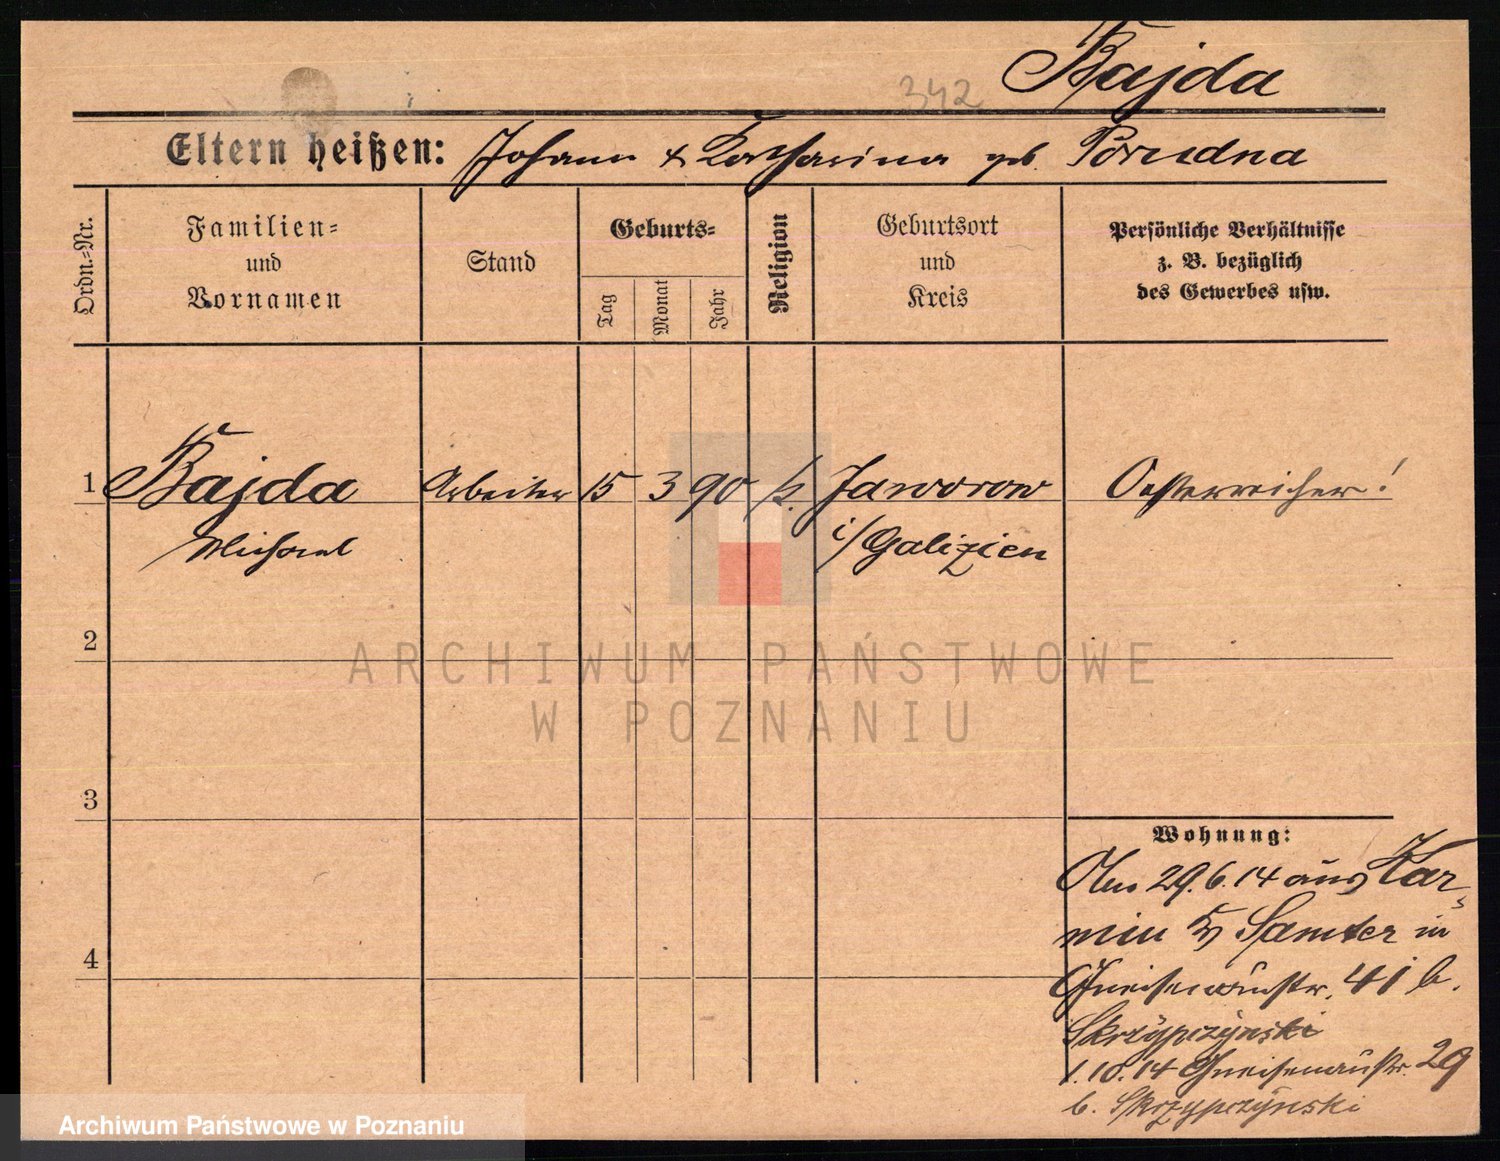 Bajda
342
Eltern heißen: Johann & Katharina geb. Porudna
Ordn.-Nr.
Familien-
und
Vornamen
Stand
Geburts-
Tag
Monat
Jahr
Religion
Geburtsort
und
Kreis
Persönliche Verhältnisse
z. B. bezüglich
des Gewerbes usw.
1 Bajda Arbeiter 15 3 90 k. Jaworow Oesterreicher!
Michael i/Galizien
2
ARCHIWUM PAŃSTWOWE
W POZNANIU
3
Wohnung:
29.6.14 aus Kar-
min Samter in
4
Gneisenaustr. 41 b.
Skrzypczynski
1.10.14 Gneisenaustr. 29
b. Skrzypczynski
Archiwum Państwowe w Poznaniu